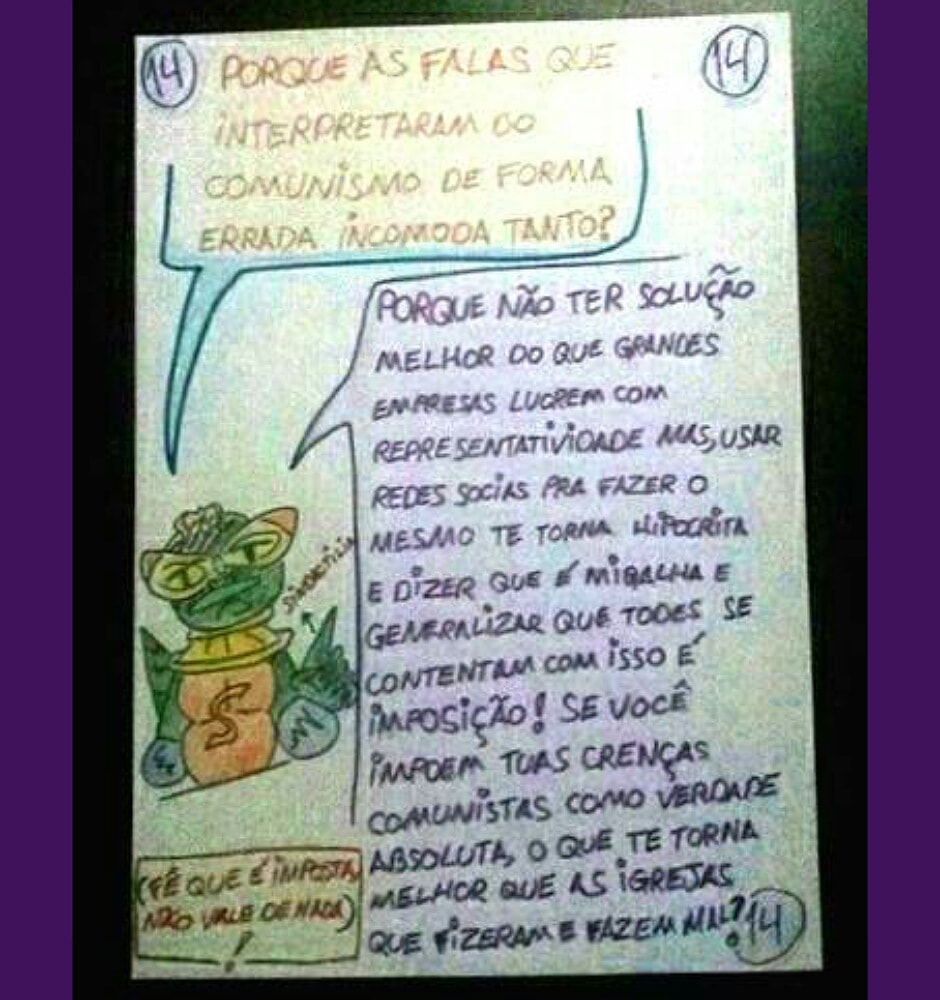 14
14
PORQUE AS FALAS QUE
INTERPRETARAM DO
COMUNISMO DE FORMA
ERRADA INCOMODA TANTO?
PORQUE NÃO TER SOLUÇÃO
MELHOR DO QUE GRANDES
EMPRESAS LUCREM COM
REPRESENTATIVIDADE MAS, USAR
REDES SOCIAS PRA FAZER O
MESMO TE TORNA HIPOCRITA
E DIZER QUE É MIGALHA E
GENERALIZAR QUE TODES SE
CONTENTAM COM ISSO É
IMPOSIÇÃO! SE VOCÊ
IMPOEM TUAS CRENÇAS
COMUNISTAS COMO VERDADE
ABSOLUTA, O QUE TE TORNA
MELHOR QUE AS IGREJAS
QUE FIZERAM E FAZEM MAL?
14
$
(FÉ QUE É IMPOSTA,
NÃO VALE DE NADA)
!